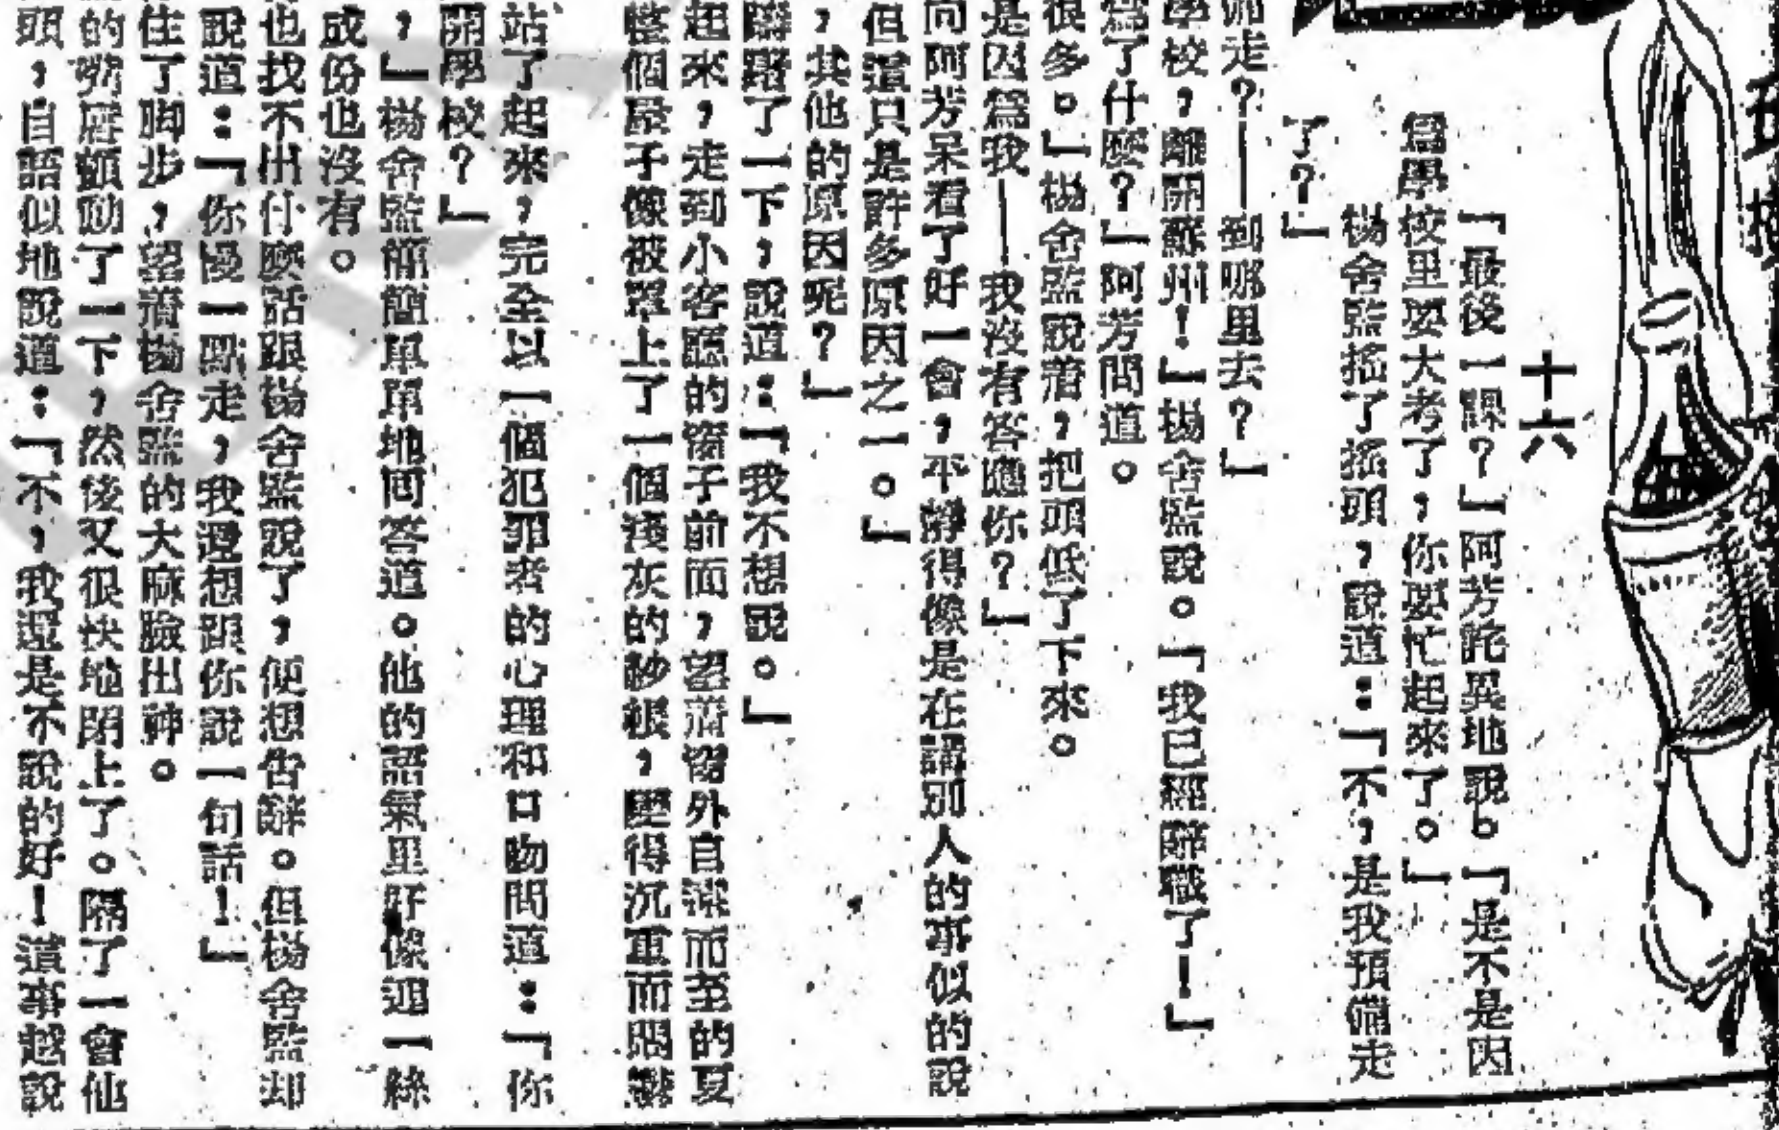 十六
「最後一課？」阿芳詫異地說。「是不是因
爲學校里要大考了，你要忙起來了。」
楊舍監搖了搖頭，說道：「不，是我預備走
了？」
走？——到哪里去？」
學校，離開蘇州！」楊舍監說。「我已經辭職了！」
爲了什麼？」阿芳問道。
很多。」楊舍監說着，把頭低了下來。
是因爲我——我沒有答應你？」
向阿芳呆看了好一會，平靜得像是在講別人的事似的說
但這只是許多原因之一。」
，其他的原因呢？」
躊躇了一下，說道：「我不想說。」
起來，走到小客廳的窗子前面，望着窗外自 而至的夏
整個屋子像被罩上了一個淺灰的紗帳，變得沉重而
站了起來，完全以一個犯罪者的心理和口吻問道：「你
開學校？」
，」楊舍監簡簡單單地回答道。他的語氣里好像連一絲
成份也沒有。
也找不出什麼話跟楊舍監說了，便想告辭。但楊舍監却
說道：「你慢一點走，我還想跟你說一句話！」
住了脚步，望着楊舍監的大麻臉出神。
的嘴唇顫動了一下，然後又很快地閉上了。隔了一會他
頭，自語似地說道：「不，我還是不說的好！這事越說